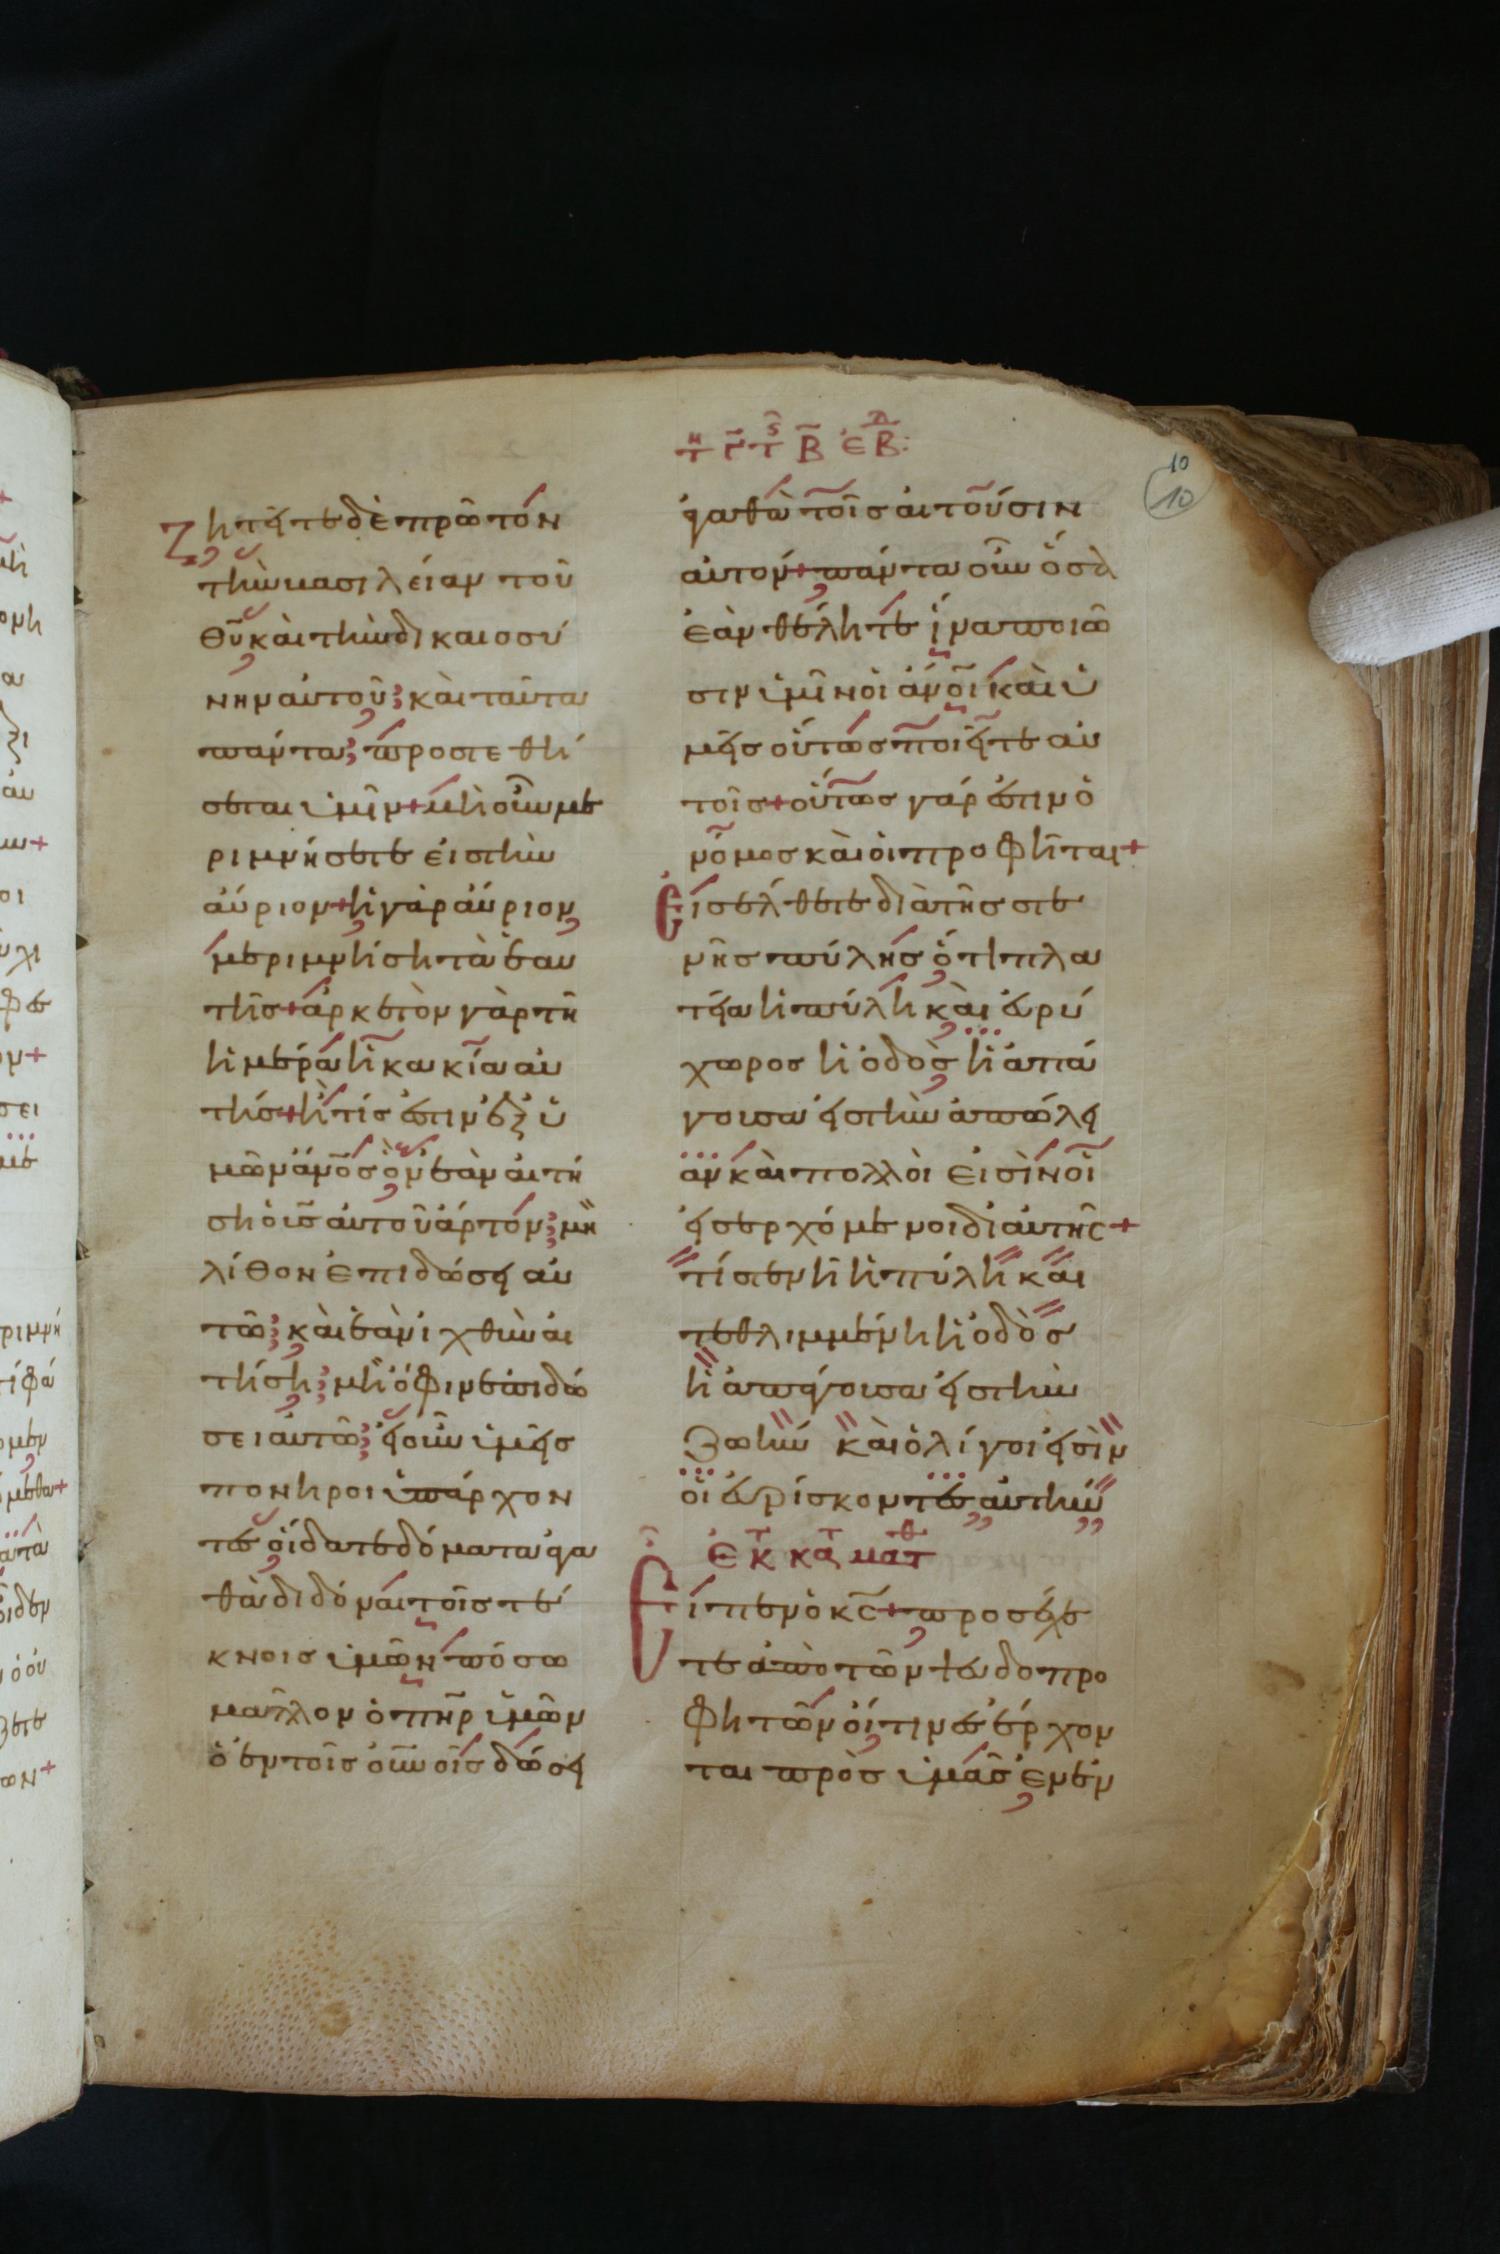 Ζητεῖτε δὲ πρῶτον
τὴν βασιλείαν τοῦ
θυ καὶ τὴν δικαιοσύ
νην αὐτοῦ· καὶ ταῦτα
πάντα προστεθή
σεται ὑμῖν+ μὴ οὖν με
ριμνήσετε εἰς τὴν
αὔριον+ ἡ γὰρ αὔριον
μεριμνήσει τὰ ἑαυ
τῆς+ ἀρκετὸν γὰρ τῇ
ἡμέρᾳ ἡ κακία αὐ
τῆς+ ἢ τίς ἐστιν ἐξ ὑ
μῶν ἀνος ὃν ἐὰν αἰτή
σῃ ὁ υἱὸς αὐτοῦ ἄρτον; μὴ
λίθον ἐπιδώσει αὐ
τῷ; καὶ ἐὰν ἰχθὺν αἰ
τήσῃ; μὴ ὄφιν ἐπιδώ
σει αὐτῷ; εἰ οὖν ὑμεῖς
πονηροὶ ὑπάρχον
τες οἴδατε δόματα ἀγα
θὰ διδόναι τοῖς τέ
κνοις ὑμῶν πόσω
μᾶλλον ὁ πηρ ὑμῶν
ὁ ἐν τοῖς οὐνοις δώσει
ἀγαθὰ τοῖς αἰτοῦσιν
αὐτόν+ πάντα οὖν ὅσα
ἐὰν θέλητε ἵνα ποιῶ
σιν ὑμῖν οἱ ἀνοι καὶ ὑ
μεῖς οὕτως ποιεῖτε αὐ
τοῖς+ οὕτως γάρ ἐστιν ὁ
νόμος καὶ οἱ προφῆται+
Εἰσέλθετε διὰ τῆς στε
νῆς πύλης ὅτι πλα
τεῖα ἡ πύλη καὶ εὐρύ
χωρος ἡ ὁδὸς ἡ ἀπά
γουσα εἰς τὴν ἀπώλει
αν καὶ πολλοὶ εἰσὶν οἱ
εἰσερχόμενοι δι αὐτῆς+
τί στενὴ ἡ πύλη καὶ
τεθλιμμένη ἡ ὁδὸς
ἡ ἀπάγουσα εἰς τὴν
ζωήν καὶ ὀλίγοι εἰσὶν
οἱ εὑρίσκοντες αὐτήν
ἐκ τ κατ ματθ
Εἶπεν ὁ κς+ προσέχε
τε ἀπὸ τῶν ψευδοπρο
φητῶν οἵτινες ἔρχον
ται πρὸς ὑμᾶς ἐν ἐν